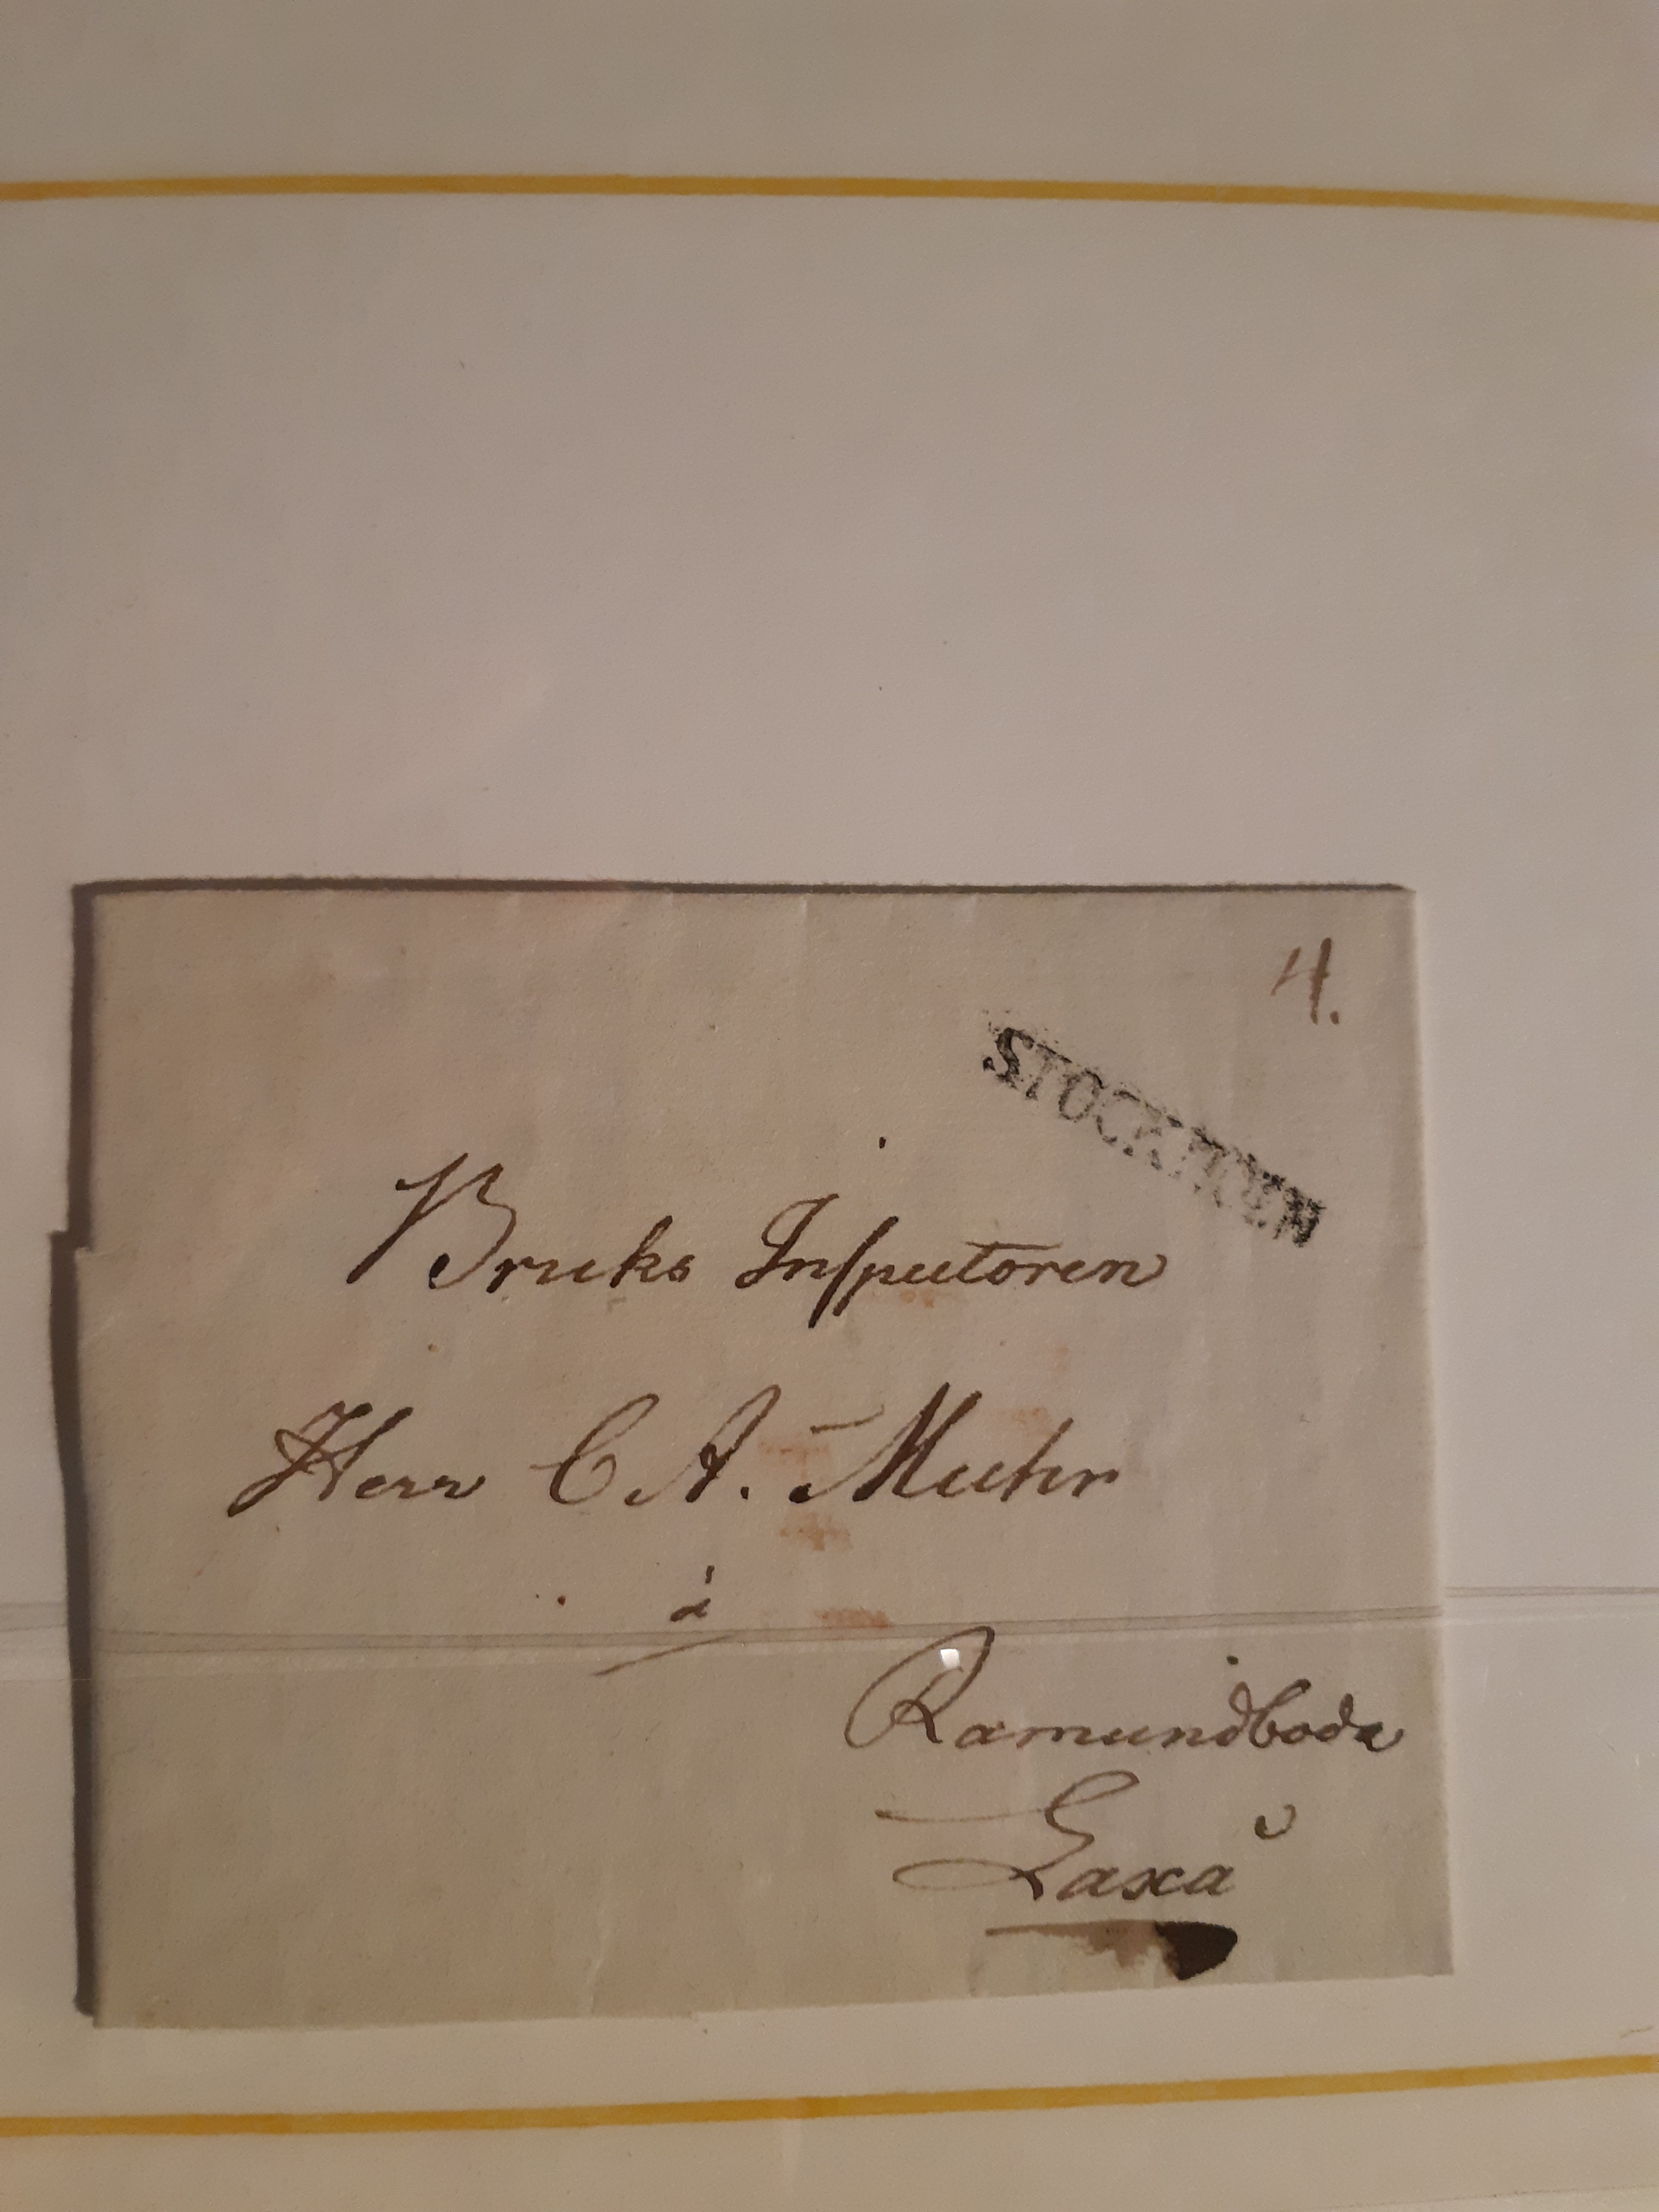 4.
STOCKHOLM
Bruks Inspectoren
Herr C A. Muhr
à
Ramundboda
Laxå